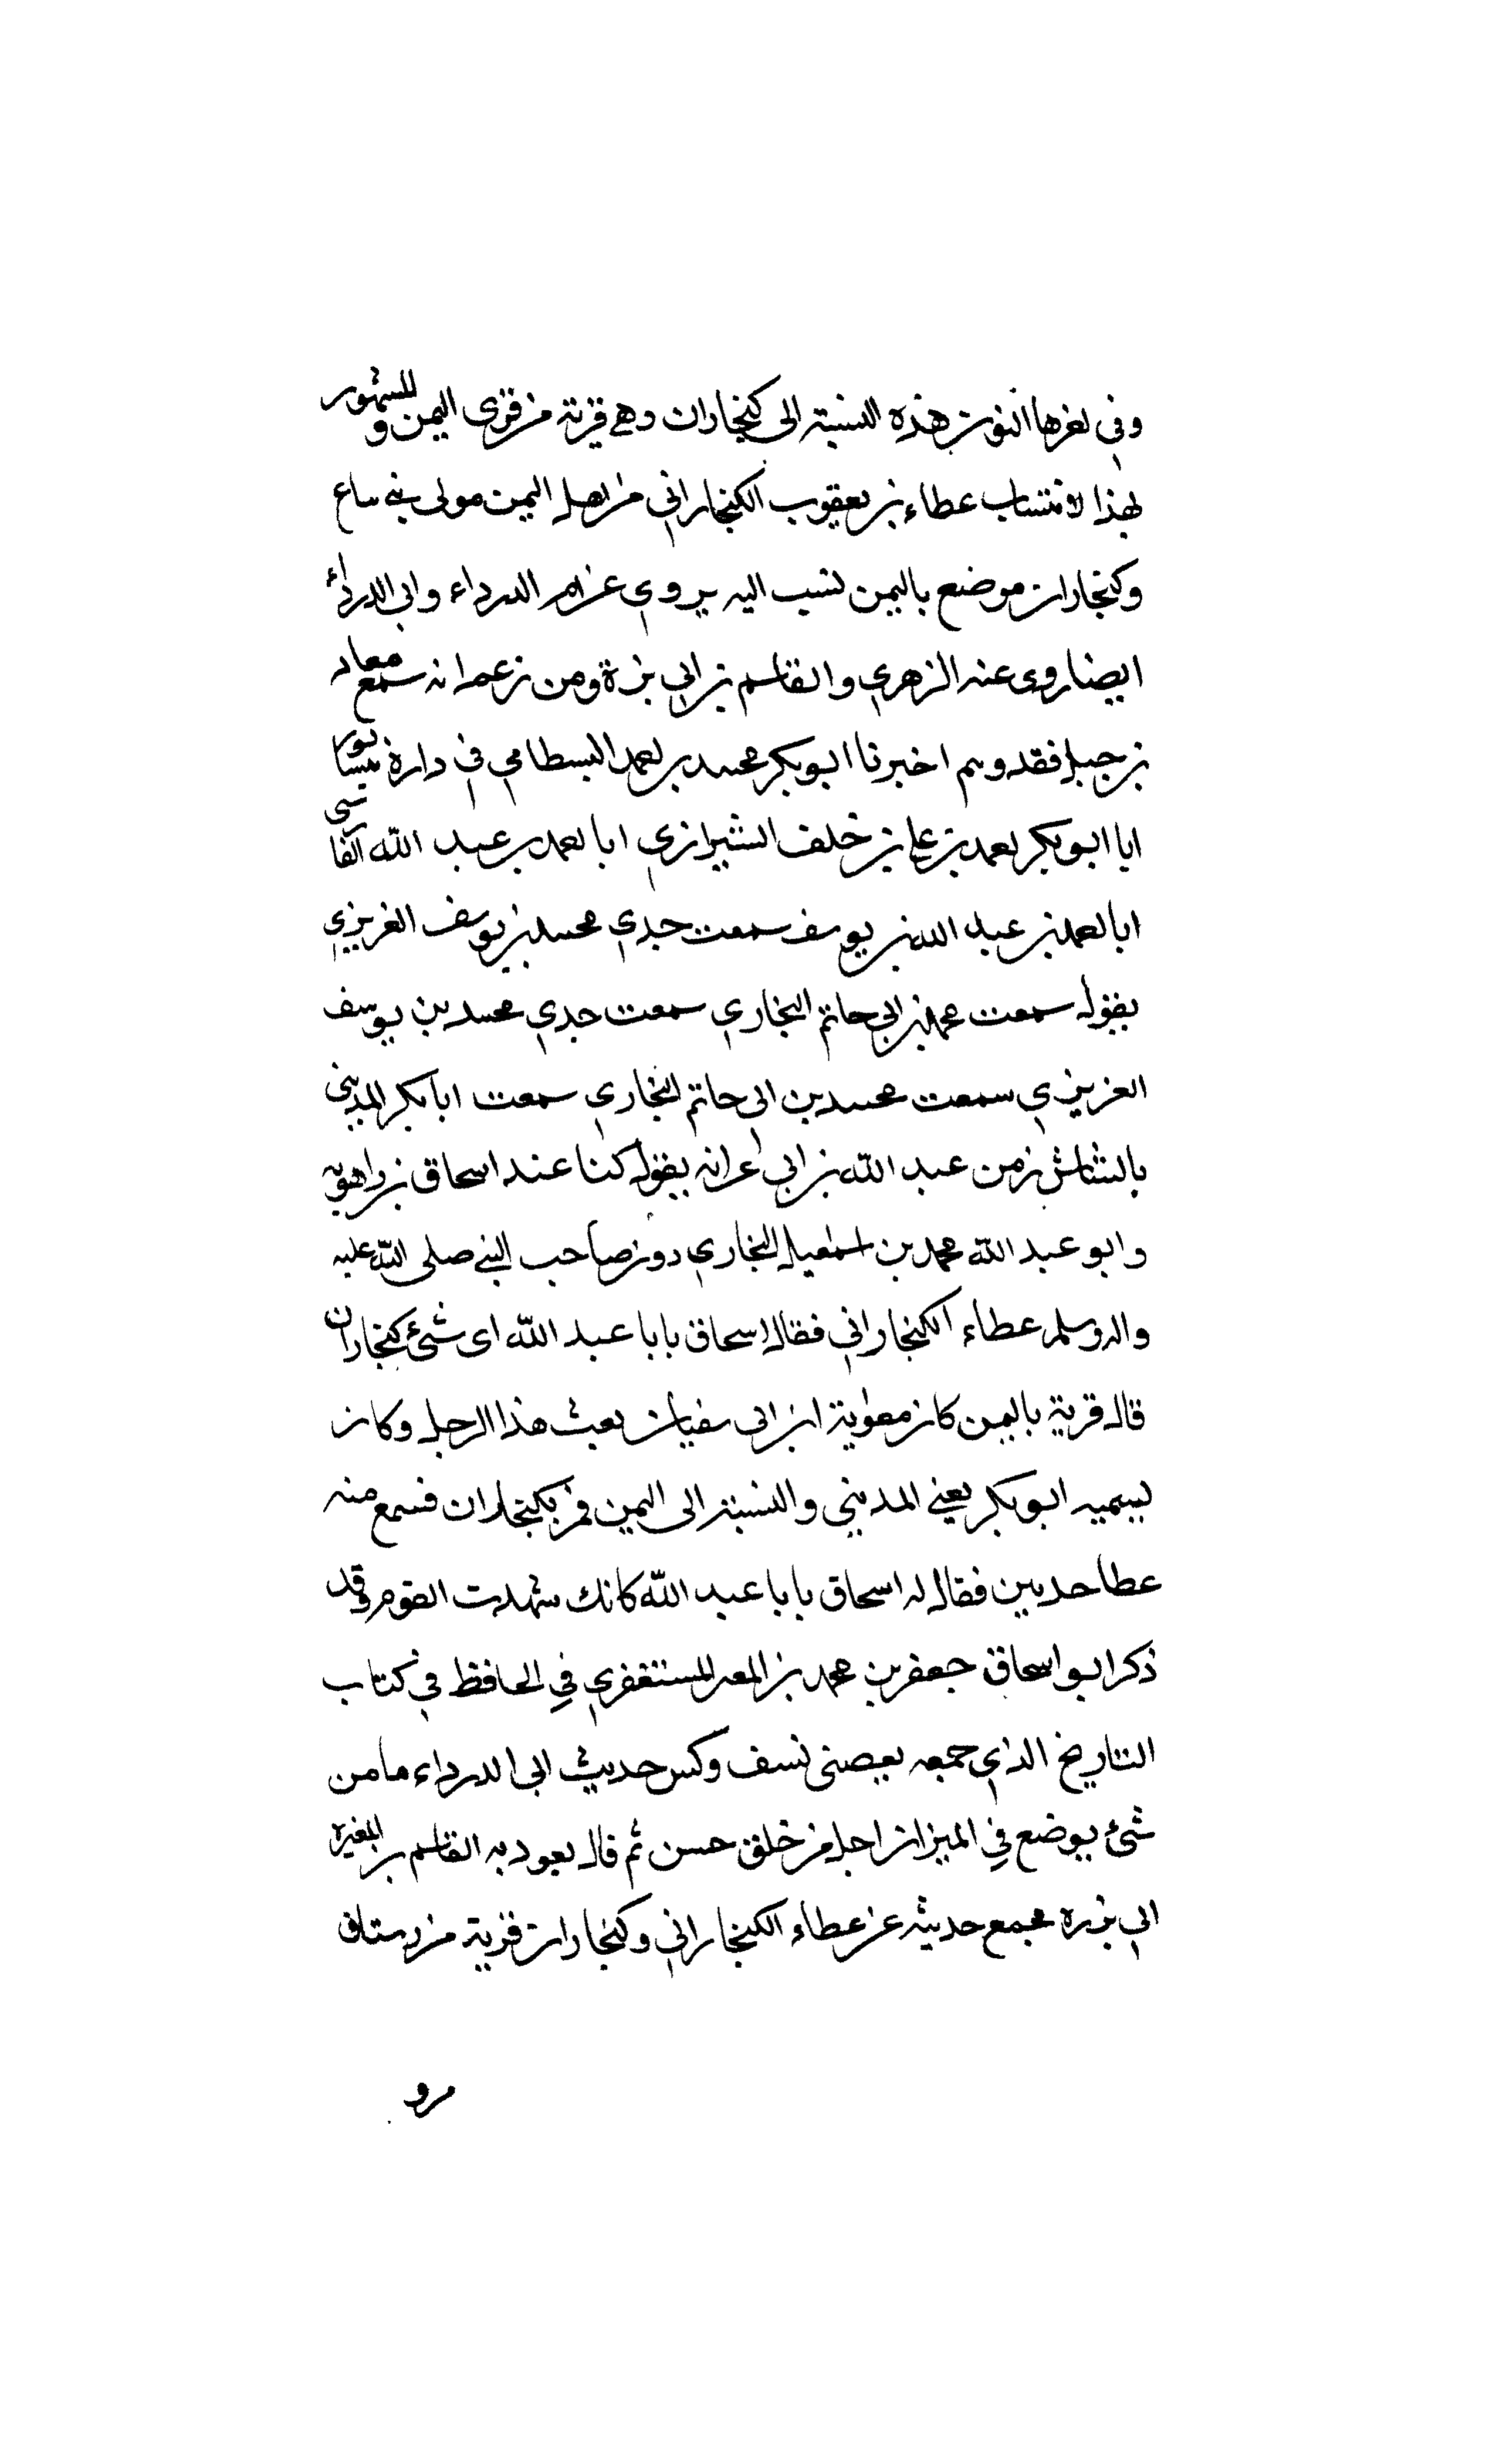 وفي اخرها النون هذه النسبة الى كنجاران وهي قرية من قرى اليمن والمشهور
بهذا الانتساب عطاء بن يعقوب الكنجاراني من اهل اليمن مولى بني ساع
وكنجاران موضع باليمن نسب اليه يروي عن ام الدرداء وابي الدرداء
ايضا روى عنه الزهري والقاسم بن ابي بزة ومن زعم انه سمع معاد
بن جبل فقد وهم اخبرنا ابو بكر محمد بن احمد البسطامي في داره نيسابور
ابا ابو بكر احمد بن علي بن خلف الشيرازي ابا احمد بن عبد الله الفارسي
ابا احمد بن عبد الله بن يوسف سمعت جدي محمد بن يوسف الغريزي
يقول سمعت محمد بن ابي حاتم البخاري سمعت جدي محمد بن يوسف
الغريزي سمعت محمد بن ابي حاتم البخاري سمعت ابا بكر المديني
بالشاش زمن عبد الله بن ابي عرانه يقول كنا عند اسحاق بن راهويه
وابو عبد الله محمد بن اسمعيل البخاري دون صاحب النبي صلى الله عليه
واله وسلم عطاء الكنجاراني فقال اسحاق بابا عبد الله اى شئ كنجاران
قال قرية باليمن كان معاوية ابن ابي سفيان بعث هذا الرجل وكان
يسميه ابو بكر يعني المديني والنسبة الى اليمن فمر بكنجاران فسمع منه
عطا حديين فقال له اسحاق بابا عبد الله كانك شهدت القوم وقد
ذكر ابو اسحاق جعفر بن محمد بن المعر المستغفري في الحافظ في كتاب
التاريخ الذي جمعه بعصنى نسف وكس حديث ابي الدرداء ما من
شئ يوضع في الميزان اجل من خلق حسن ثم قال يعود به القاسم بن المغيرة
ابي بزره مجمع حديثه عن عطاء الكنجاراني وكنجاران قرية من رستاق
مرو